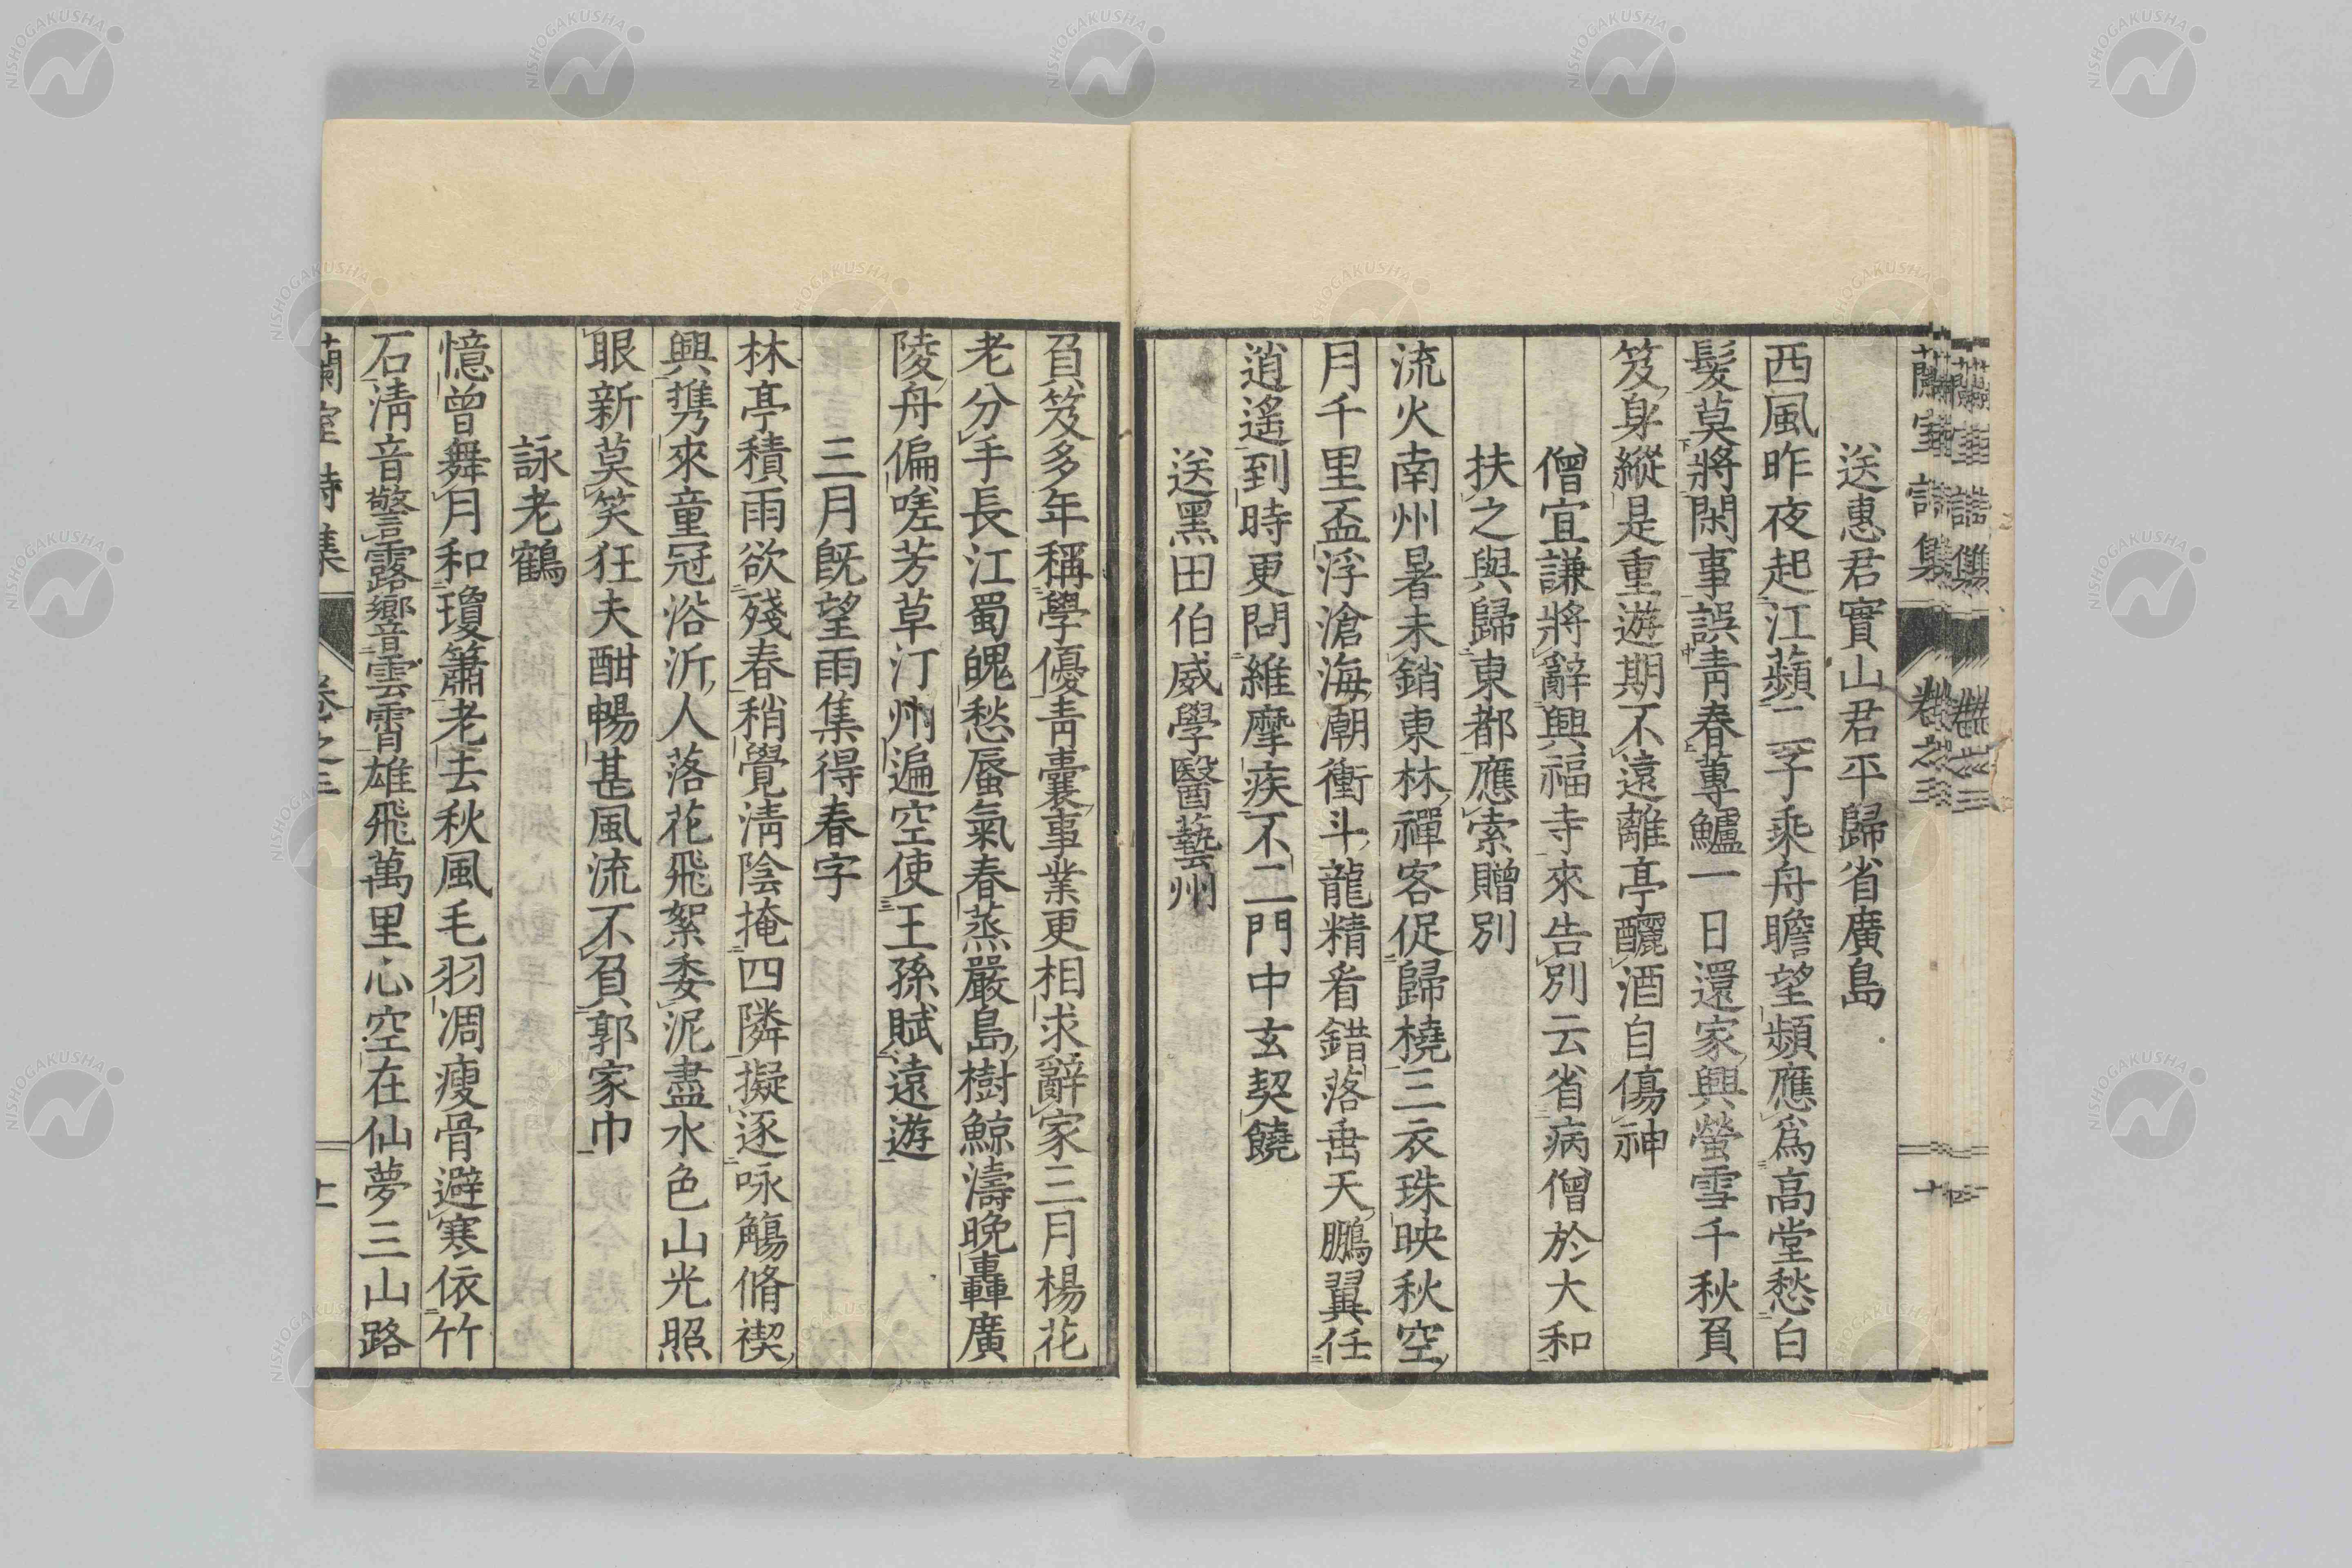 蘭室詩集 卷之三 十
送惠君實山君平歸省廣島
西風昨夜起江蘋二子乘舟瞻望頻應爲高堂愁白
髮莫將閑事誤青春蓴鱸一日還家興螢雪千秋負
笈身縱是重遊期不遠離亭釃酒自傷神
僧宜謙將辭興福寺來告別云省病僧於大和
扶之與歸東都應索贈別
流火南州暑未銷東林禪客促歸橈三衣珠映秋空
月千里盃浮滄海潮衝斗龍精看錯落垂天鵬翼任
逍遙到時更問維摩疾不二門中玄契饒
送黑田伯威學醫藝州
負笈多年稱學優青囊事業更相求辭家三月楊花
老分手長江蜀魄愁蜃氣春蒸嚴島樹鯨濤晚轟廣
陵舟偏嗟芳草汀州遍空使王孫賦遠遊
三月既望雨集得春字
林亭積雨欲殘春稍覺淸陰掩四隣擬逐咏觴脩禊
興攜來童冠浴沂人落花飛絮委泥盡水色山光照
眼新莫笑狂夫酣暢甚風流不負郭家巾
詠老鶴
憶曾舞月和瓊簫老去秋風毛羽凋瘦骨避寒依竹
石淸音警露響雲霄雄飛萬里心空在仙夢三山路
蘭室詩集 卷之三 十一
NISHOGAKUSHA